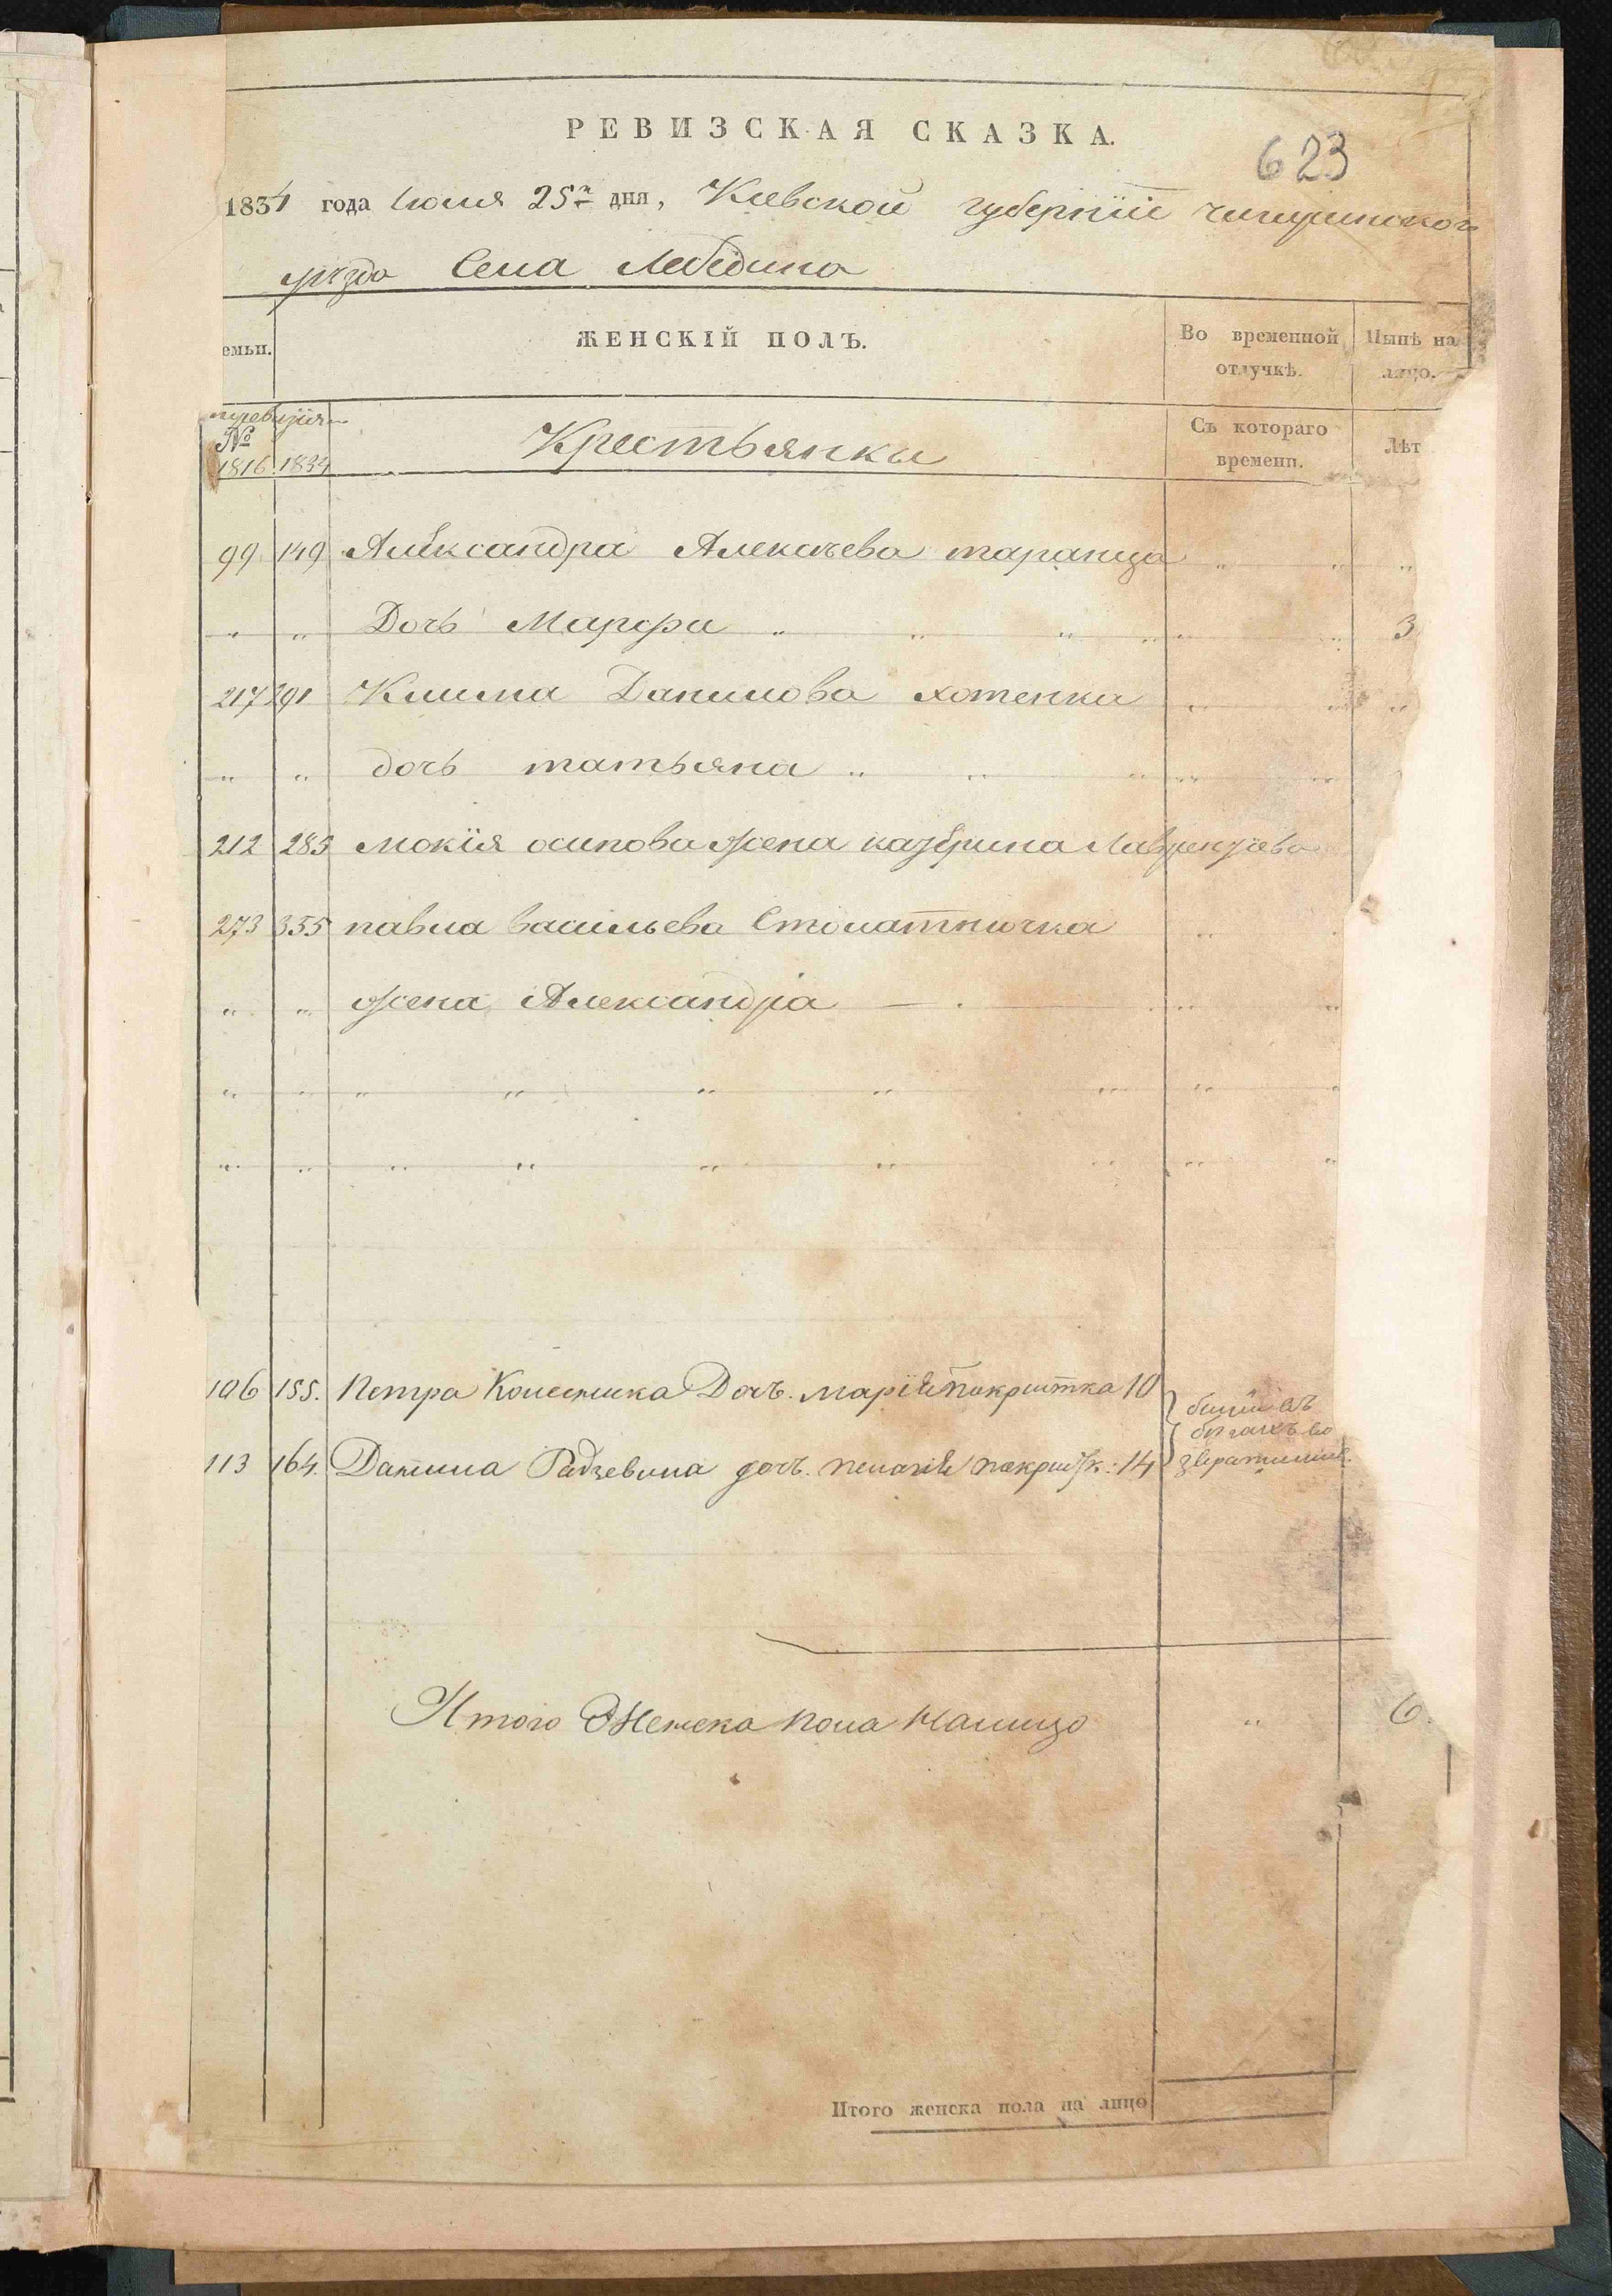 РЕВИЗСКАЯ СКАЗКА.
623
1834 года Июля 25го дня, Киевской губернїи чигиринского
уѣзда Села Лебедина
емьи.
ЖЕНСКІЙ ПОЛЪ.
Во временной отлучкѣ.
Нынѣ на лицо.
№
1816 1834
Крестьянки
Съ котораго времени.
Лѣт
99 149 Александра Алексѣева таранца
Дочь Марфа 3
217 291 Клима Данилова хотенка
дочь татьяна
212 285 мокїя осипова жена катрина
273 355 павла васильева
жена Александра
106 155. Петра Колесника Дочь. Марїя покритка 10
113 164. Данила дочь. пелагея покритк: 14
бегахъ во
Итого Женска пола налицо 6.
Итого женска пола на лицо